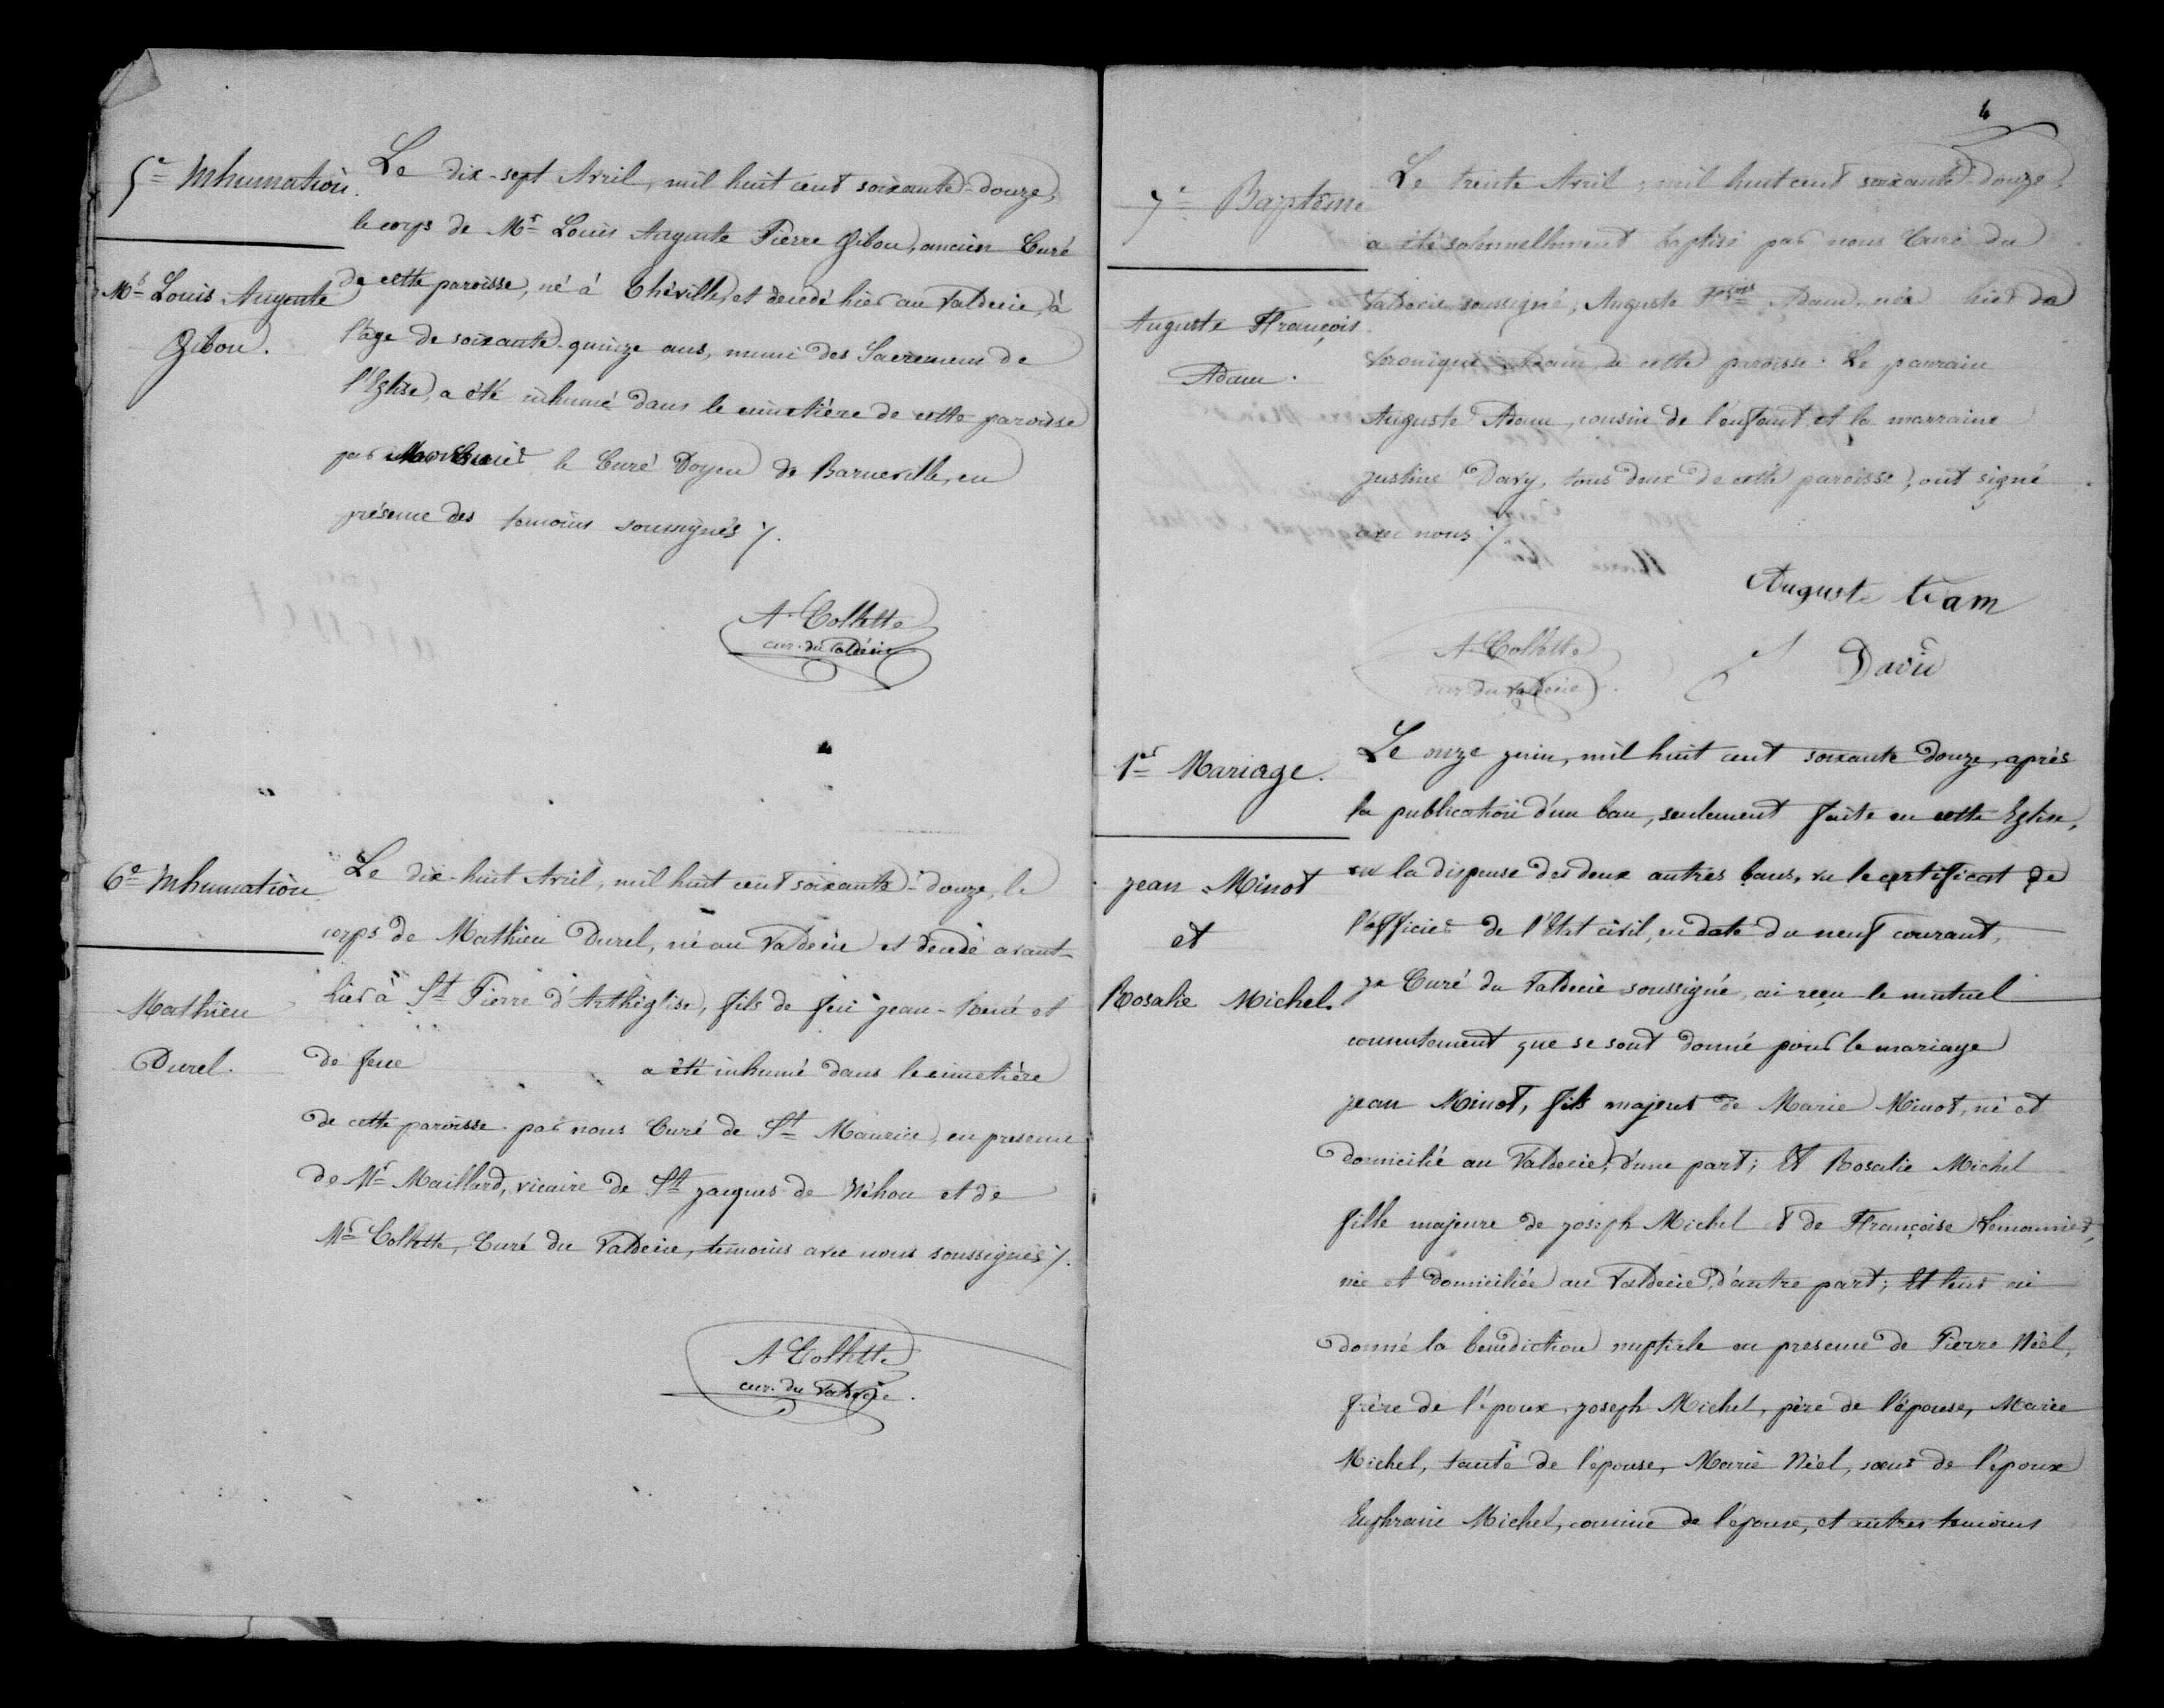 5e Inhumation.
Mr Louis Auguste
Gibon.
Le dix-sept Avril, mil huit cent soixante-douze,
le corps de Mr Louis Auguste Pierre Gibon, ancien Curé
de cette paroisse, né à Théville, et decedé hier au Valdecie, à
l'âge de soixante-quinze ans, muni des Sacremens de
l'Eglise, a été inhumé dans le cimetière de cette paroisse
par le Curé Doyen de Barneville, en
présence des temoins soussignés %.
A. Collette
cur. du Valdécie
6e Inhumation
Mathieu
Durel.
Le dix-huit Avril, mil huit cent soixante-douze, le
corps de Mathieu Durel, né au Valdecie et decedé avant-
hier à St Pierre d'Arthéglise, fils de feu jean-René et
de feue a été inhumé dans le cimetière
de cette paroisse par nous Curé de St Maurice, en presence
de Mr Maillard, vicaire de St jacques de Néhou et de
Mr Collette, Curé du Valdécie, temoins avec nous soussignés %.
A Collette
cur. du Valdécie.
4
7e Baptême
Auguste François
Adam.
Le trente Avril, mil huit cent soixante-douze,
a été solennellement baptisé par nous Curé du
Valdecie soussigné, Auguste Adam, né hier de
Véronique Adam, de cette paroisse. Le parrain
Auguste Adam, cousin de l'enfant et la marraine
justine Davy, tous deux de cette paroisse, ont signé
avec nous %
Auguste
A. Collette
cur du Valdécie.
J Davie
1er Mariage.
jean Minot
et
Rosalie Michel.
Le onze juin, mil huit cent soixante douze, après
la publication d'un ban, seulement faite en cette Eglise,
vu la dispense des deux autres bans, vu le certificat de
l'officier de l'Etat civil, en date du neuf courant,
je Curé du Valdecie soussigné, ai reçu le mutuel
consentement que se sont donné pour le mariage
jean Minot, fils majeur de Marie Minot, né et
domicilié au Valdecie, d'une part; Et Rosalie Michel
fille majeure de joseph Michel et de Françoise Lemonnier,
née et domiciliée au Valdecie, d'autre part; Et leur ai
donné la benediction nuptiale en presence de Pierre Néel,
frère de l'époux, joseph Michel, père de l'épouse, Marie
Michel, tante de l'epouse, Marie Néel, sœur de l'époux
Euphrasie Michel, cousine de l'épouse, et autres temoins